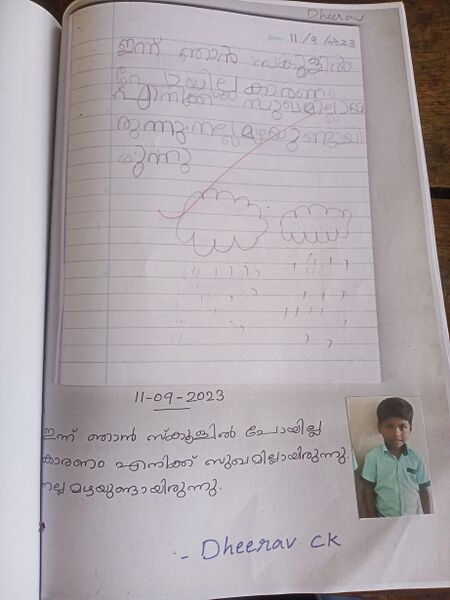 Dheerav
Date 11/9/2023
ഇന്ന് ഞാൻ സ്കൂളിൽ
പോയില്ല കാരണം
എനിക്ക് സുഖമില്ലായി
രുന്നു. നല്ല മഴയുണ്ടായി
രുന്നു
11-09-2023
ഇന്ന് ഞാൻ സ്കൂളിൽ പോയില്ല
കാരണം എനിക്ക് സുഖമില്ലായിരുന്നു.
നല്ല മഴയുണ്ടായിരുന്നു.
- Dheerav CK